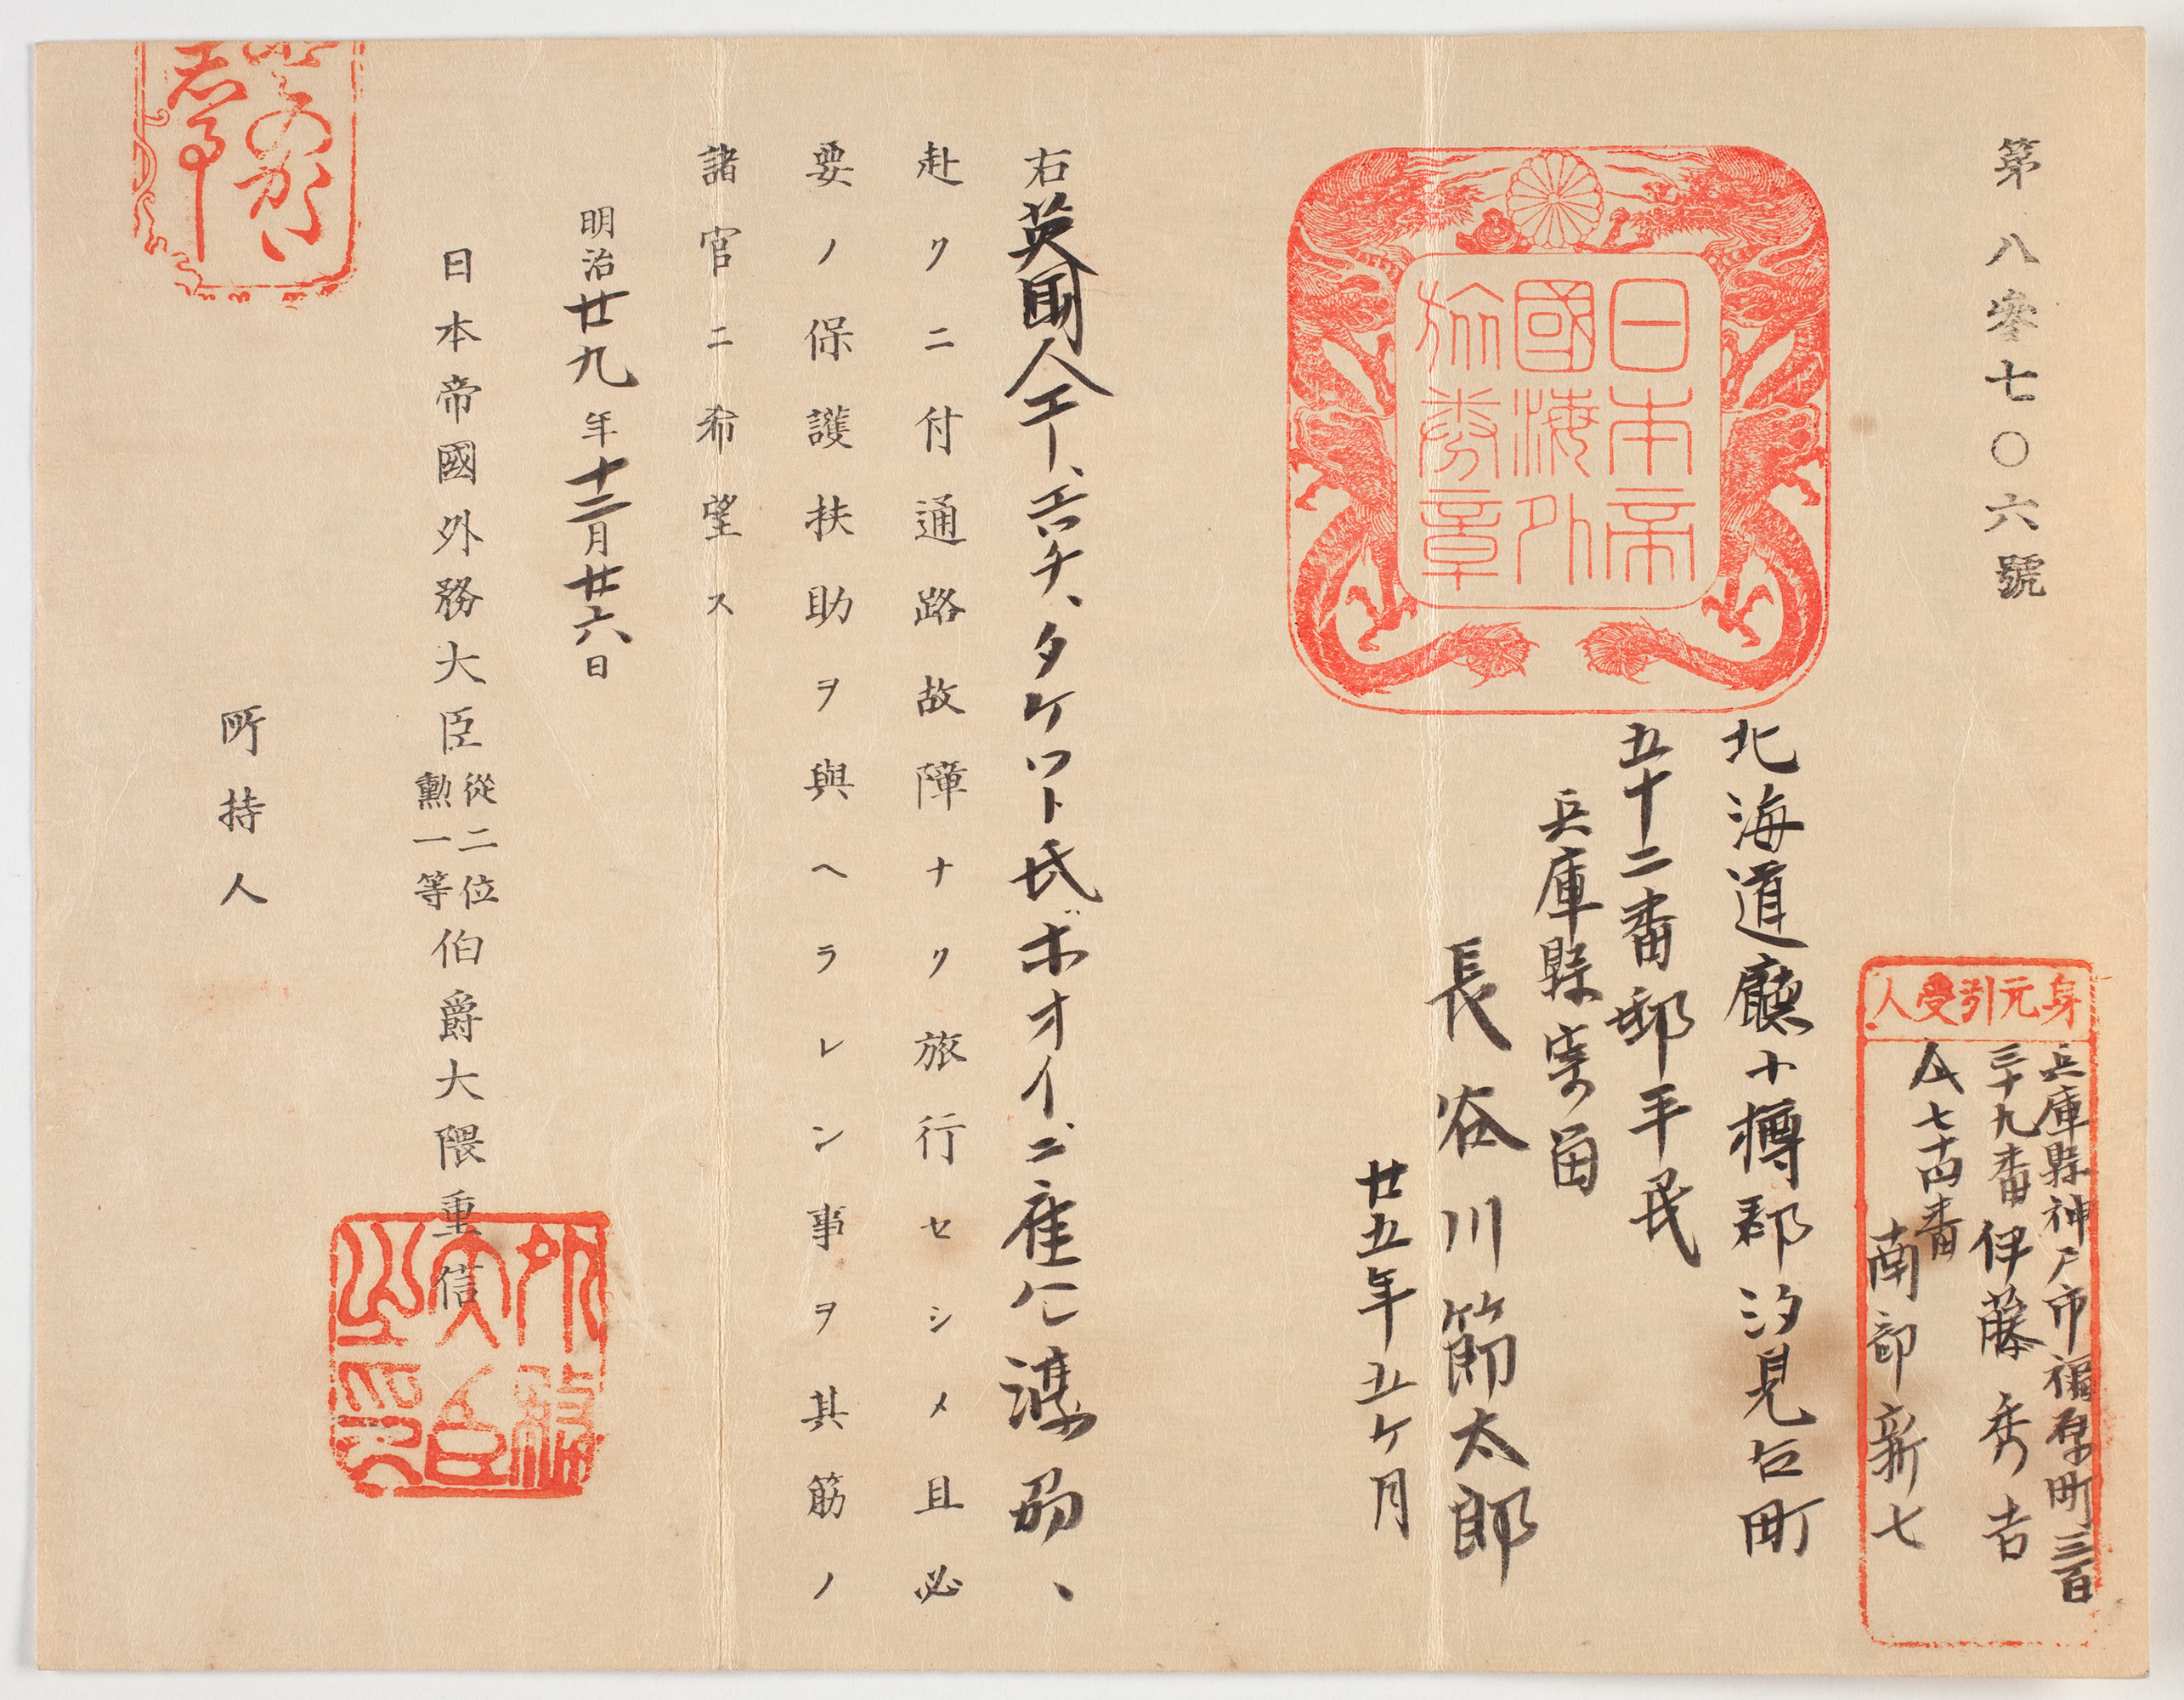 第八零七〇六號
日本帝
國海外
旅券章
身元引受人
兵庫縣神戸市福原町三百
三十九番 伊藤秀吉
仝七十四番
南部新七
北海道廳小樽郡汐見台町
五十二番邸平民
兵庫縣寄留
長谷川節太郎
廿五年五ケ月
右英國人エー、エチ、タケット氏ボオイニ雇ハレ渡
赴クニ付通路故障ナク旅行セシメ且必
要ノ保護扶助ヲ與ヘラレン事ヲ其筋ノ
諸官ニ希望ス
明治廿九年十二月廿六日
日本帝國外務大臣從二位勳一等伯爵大隈重信
外務
大臣
之印
所持人